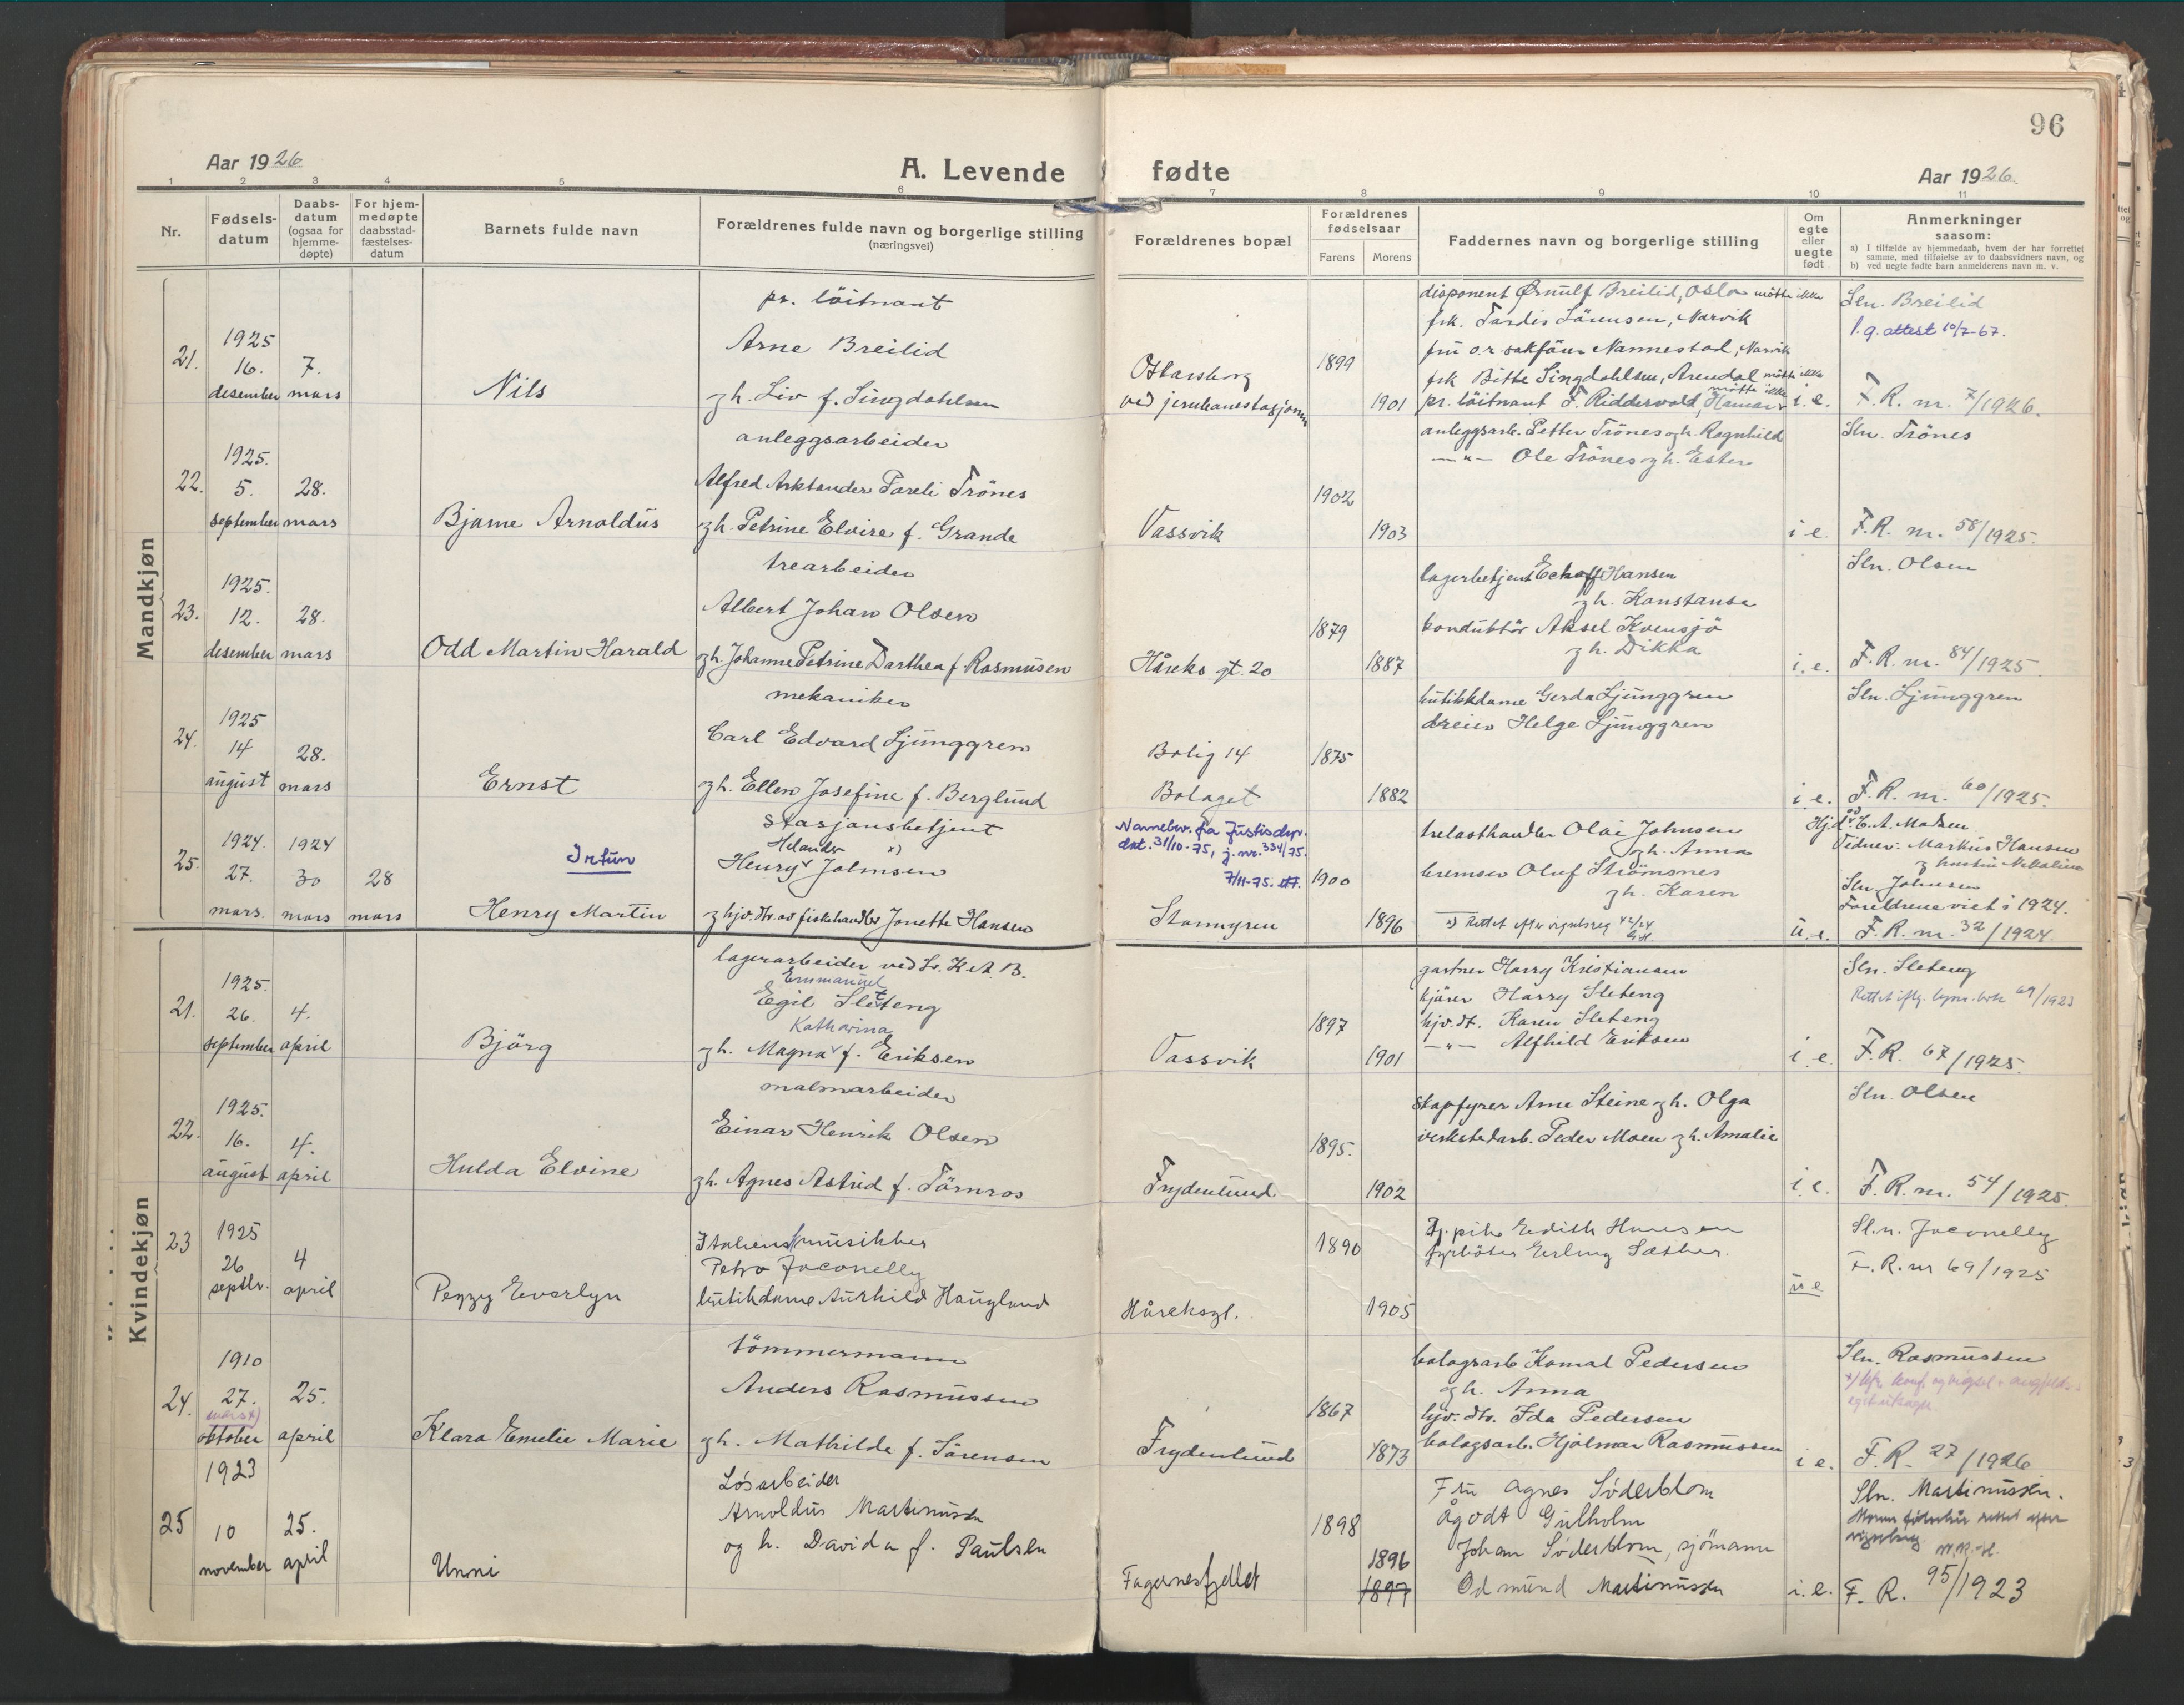 96
Aar 1926
A. Levende fødte
Aar 1926.
1 2 3 4 5 6 7 8 9 10 11
Nr.
Fødsels-
datum
Daabs-
datum
(ogsaa for
hjemme-
døpte)
For hjem-
medøpte
daabsstad-
fæstelses-
datum
Barnets fulde navn
Forældrenes fulde navn og borgerlige stilling
(næringsvei)
Forældrenes bopæl
Forældrenes
fødselsaar
Farens Morens
Faddernes navn og borgerlige stilling
Om
egte
eller
uegte
født
Anmerkninger
saasom:
a) I tilfælde av hjemmedaab, hvem der har forrettet
samme, med tilføielse av to daabsvidners navn, og
b) ved uegte fødte barn anmelderens navn m. v.
Mandkjøn
21.
1925
16.
desember
7.
mars
Nils
pr. löitnant
Arne Breilid
g h. Liv f. Lingdahlsen
ved jernbanestasjonen
1899
1901
disponent Ørnulf Breilid, Oslo møtte ikke
frk. Tordis Sörensen, Narvik
fru o.r. sakförer Nannestad, Narvik
frk Bitte Lingdahlsen, Arendal møtte ikke
møtte ikke
pr. löitnant F. Riddervold, Hamar
i. e.
Sln. Breilid
l. g. attest 10/7-67.
F. R. nr. 7/1926.
22.
1925.
5.
september
28.
mars
Bjarne Arnoldus
anleggsarbeider
Alfred Arktander Pareli Trönes
g h. Petrine Elvire f. Grande
Vassvik
1902
1903
anleggsarb. Petter Trönes g h. Ragnhild
—"— Ole Trönes g h. Ester
i e.
Sln. Trönes
F. R. nr. 58/1925.
23.
1925.
12.
desember
28.
mars
Odd Martin Harald
trearbeider
Albert Johan Olsen
g h. Johanne Petrine Darthea f Rasmusen
Håreks gt. 20
1879
1887
lagerbetjent Echoff Hansen
g h. Konstanse
konduktör Aksel Kvensjö
g h. Dikka
i. e.
Sln. Olsen
F. R. nr. 84/1925
24.
1925
14
august
28.
mars
Ernst
mekaniker
Carl Edvard Ljunggren
g h. Ellen Josefine f. Berglund
Bolig 14
Bolaget
1875
1882
butikkdame Gerda Ljunggren
dreier Helge Ljunggren
i. e.
Sln. Ljunggren
F. R. nr. 60/1925.
25.
1924.
27.
mars.
1924
30
mars
28
mars
Irtun
Henry Martin
stasjonsbetjent
Helander x)
Henry Johnsen
g hjv. dtr. av fiskehandler Jonette Hansen
Navnebev. fra Justisdep.
dat. 31/10-75, j. nr. 334/75.
7/11-75.
Stormyren
1900
1896
trelasthandler Olai Johnsen
g h. Anna
bremser Oluf Strömsnes
g h. Karen
x) Rettet efter vigselsreg 42/24
u. e.
Hjd. v. E. A. Madsen
Vidner: Markus Hansen
g hustru Nikoline
Sln. Johnsen
Foreldrene viet i 1924.
F. R. nr. 32/1924.
Kvindekjøn
21.
1925.
26.
september
4.
april
Björg
lagerarbeider ved L. K. A. B.
Emmanuel
Egil Sletteng
Katharina
g h. Magna f. Eriksen
Vassvik
1897
1901
gartner Harry Kristiansen
kjörer Harry Sleteng
hjv. dt. Karen Sleteng
—"— Alfhild Eriksen
i. e.
Sln. Sleteng
F. R. 67/1925.
22.
1925.
16.
august
4.
april
Hulda Elvine
malmarbeider
Einar Henrik Olsen
g h. Agnes Astrid f. Törnros
Frydenlund
1895.
1902
skapfyrer Arne Steine g h. Olga
verkstedarb. Peder Moen g h. Amalie
i. e.
Sln. Olsen
F. R. nr. 54/1925.
23
1925
26
septbr.
4
april
Peggy Everlyn
Italiensk musikker
Petro Jaconelly
butikdame Aurhild Hauglund
Håreksgt.
1890
1905
Tj. pike Edith Hansen
fyrböter Erling Sæther.
u e
Sln. Jaconelly
F. R. nr 69/1925
24.
1910
27.
mars x)
oktober
25.
april
Klara Emelie Marie
tömmermann
Anders Rasmussen
g h. Mathilde f. Sörensen
Frydenlund
1867
1873
bolagsarb Komal Pedersen
g h. Anna
hjv. dtr. Ida Pedersen
bolagsarb. Hjalmar Rasmussen
i e.
Sln. Rasmussen
F. R. 27/1926
25
1923
10
november
25.
april
Unni
Løsarbeider
Arnoldus Martinussen
og h. Davida f. Paulsen
Fagernesfjellet
1898
1896
1897
Fru Agnes Söderblom
Ågodt Gulholm
Johan Söderblom, sjömann
Odmund Martinussen
i. e.
Sln. Martinussen.
Morens fødselsår rettet efter
F. R. 95/1923